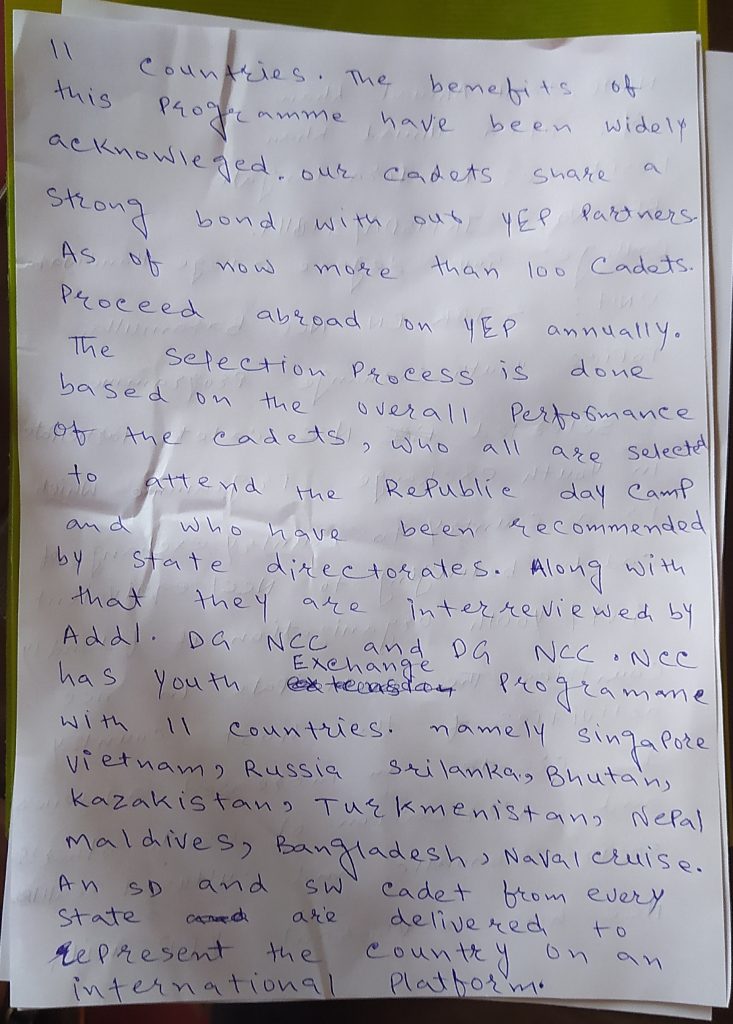 11 countries. The benefits of
this programme have been widely
acknowleged. our cadets share a
strong bond with out YEP Partners.
As of now more than 100 Cadets.
Proceed abroad on YEP annually.
The Selection Process is done
based on the overall Performance
of the cadets, who all are selected
to attend the Republic day Camp
and who have been recommended
by state directorates. Along with
that they are interreviewed by
Addl. DG NCC and DG NCC. NCC
has youth Exchange Programane
with 11 countries. namely singapore
vietnam, Russia srilanka, Bhutan,
Kazakistan, Turkmenistan, Nepal
maldives, Bangladesh, Naval cruise.
An SD and SW cadet from every
state are delivered to
represent the country on an
international Platform.